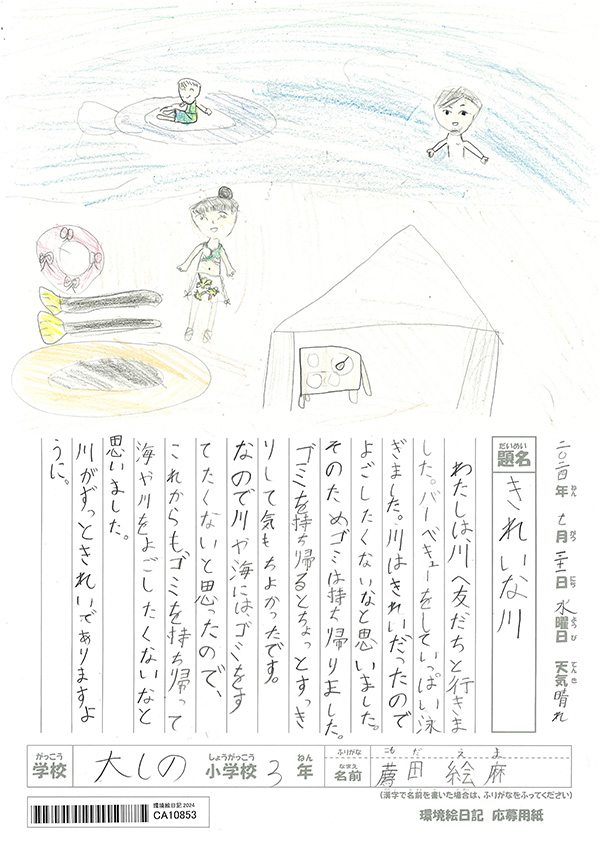 二〇二四年 七月 三十一日 水曜日 天気 晴れ
だいめい
題名 きれいな川
わたしは、川へ友だちと行きま
した。バーベキューをしていっぱい泳
ぎました。川はきれいだったので
よごしたくないなと思いました。
そのためゴミは持ち帰りました。
ゴミを持ち帰るとちょっとすっき
りして気もちよかったです。
なので川や海にはゴミをす
てたくないと思ったので、
これからもゴミを持ち帰って
海や川をよごしたくないなと
思いました。
川がずっときれいでありますよ
うに。
がっこう しょうがっこう ねん
学校 大しの 小学校 3年
ふりがな こもだ えま
なまえ
名前 薦田 絵麻
(漢字で名前を書いた場合は、ふりがなをふってください)
環境絵日記 2024
CA10853
環境絵日記 応募用紙